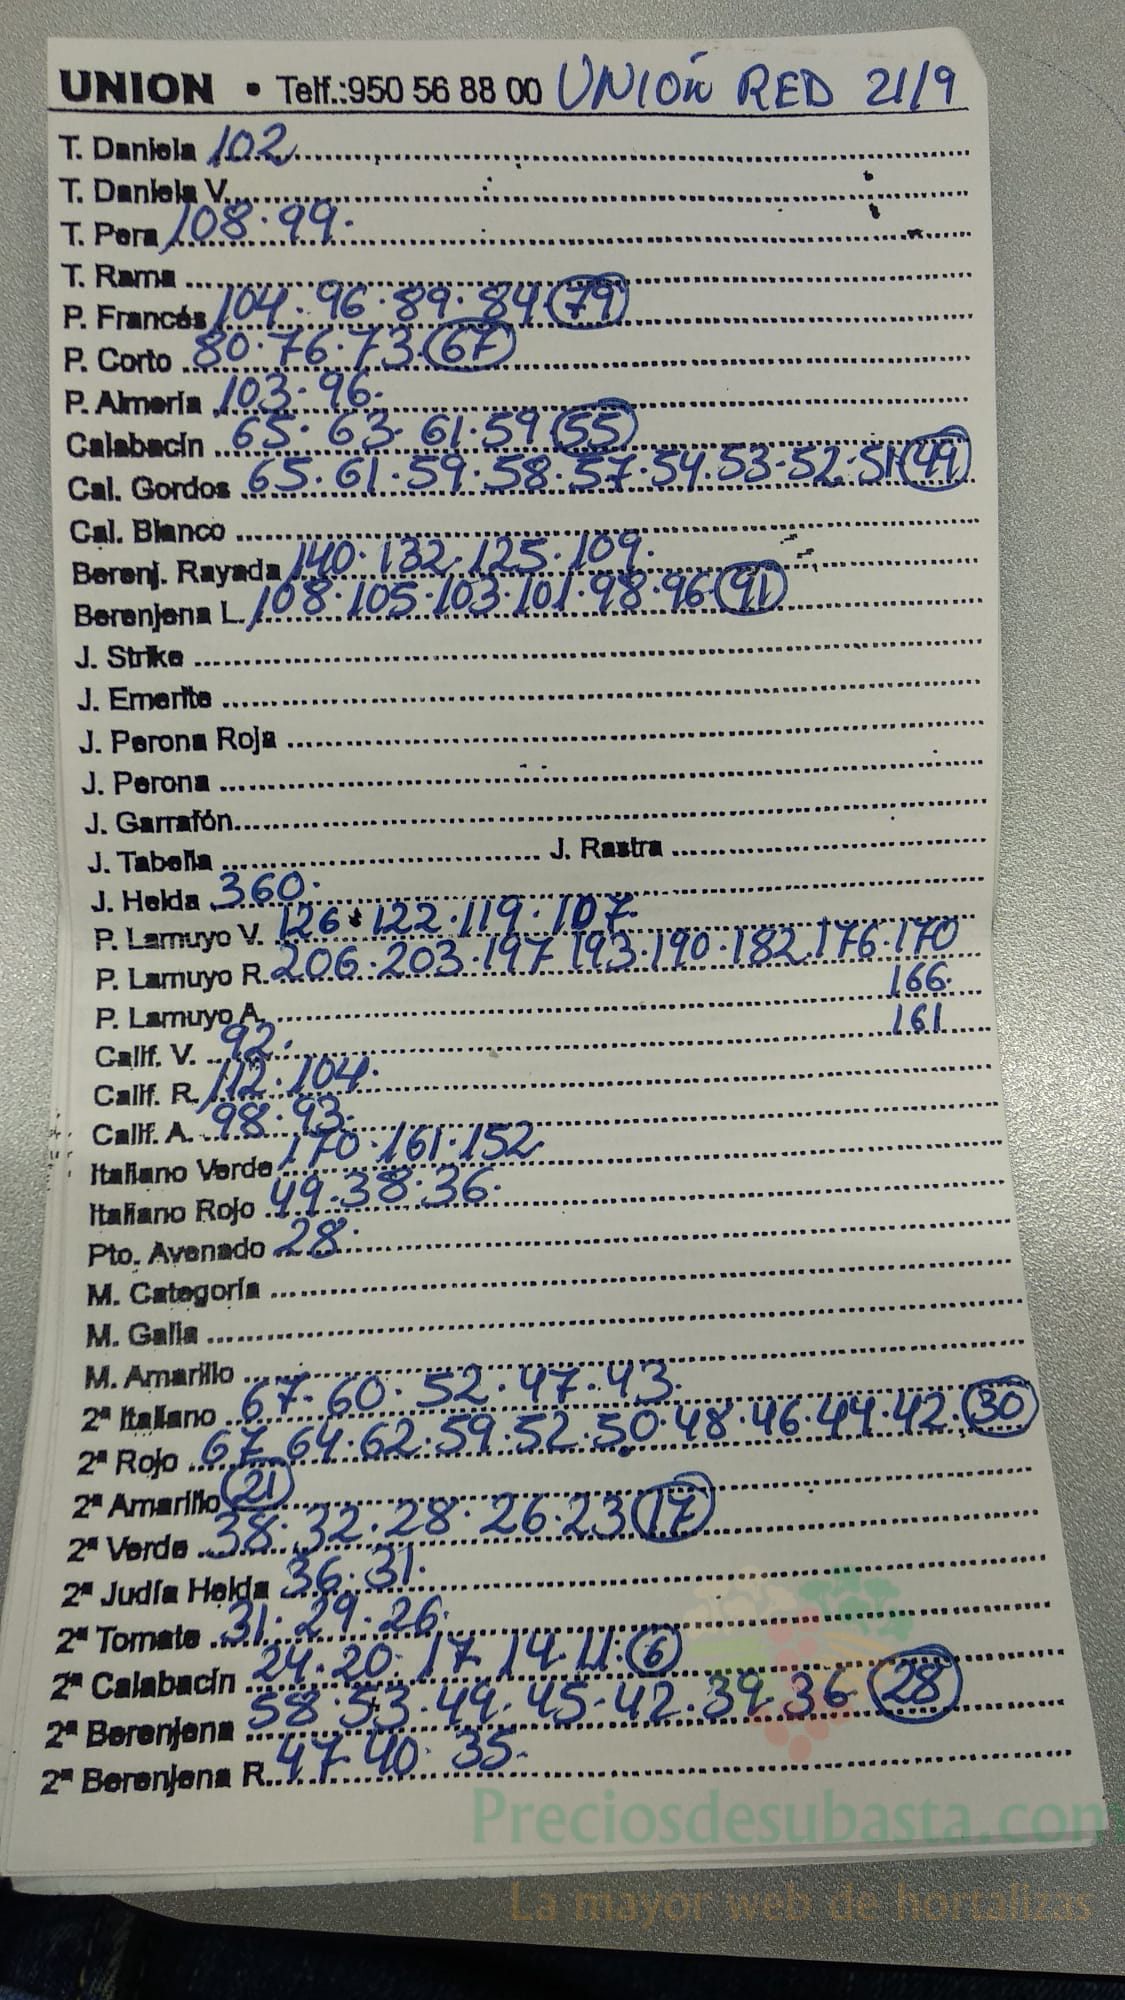 UNION • Telf.:950 56 88 00 UNIÓN RED 21/9
T. Daniela 102
T. Daniela V.
T. Pera 108·99·
T. Rama
P. Francés 104·96·89·84 79
P. Corto 80·76·73· 67
P. Almería 103·96·
Calabacín 65·63·61·59 55
Cal. Gordos 65·61·59·58·57·54·53·52·51 49
Cal. Blanco
Berenj. Rayada 140·132·125·109·
Berenjena L. 108·105·103·101·98·96· 91
J. Strike
J. Emerite
J. Perona Roja
J. Perona
J. Garrafón
J. Tabella J. Rastra
J. Helda 360·
P. Lamuyo V. 126·122·119·107·
P. Lamuyo R. 206·203·197 193·190·182·176·170
166·
P. Lamuyo A.
161
Calif. V. 92·
Calif. R. 112·104·
Calif. A. 98·93·
Italiano Verde 170·161·152
Italiano Rojo 49·38·36·
Pto. Avenado 28·
M. Categoría
M. Galia
M. Amarillo
2ª Italiano 67·60·52·47·43·
2ª Rojo 67 64·62·59·52·50·48·46·44·42· 30
2ª Amarillo 21
2ª Verde 38·32·28·26·23 17
2ª Judía Helda 36·31·
2ª Tomate 31·29·26·
2ª Calabacín 24·20·17 14·11· 6
2ª Berenjena 58·53·49·45·42·39·36· 28
2ª Berenjena R. 47 40·35·
Preciosdesubasta.com
La mayor web de hortalizas